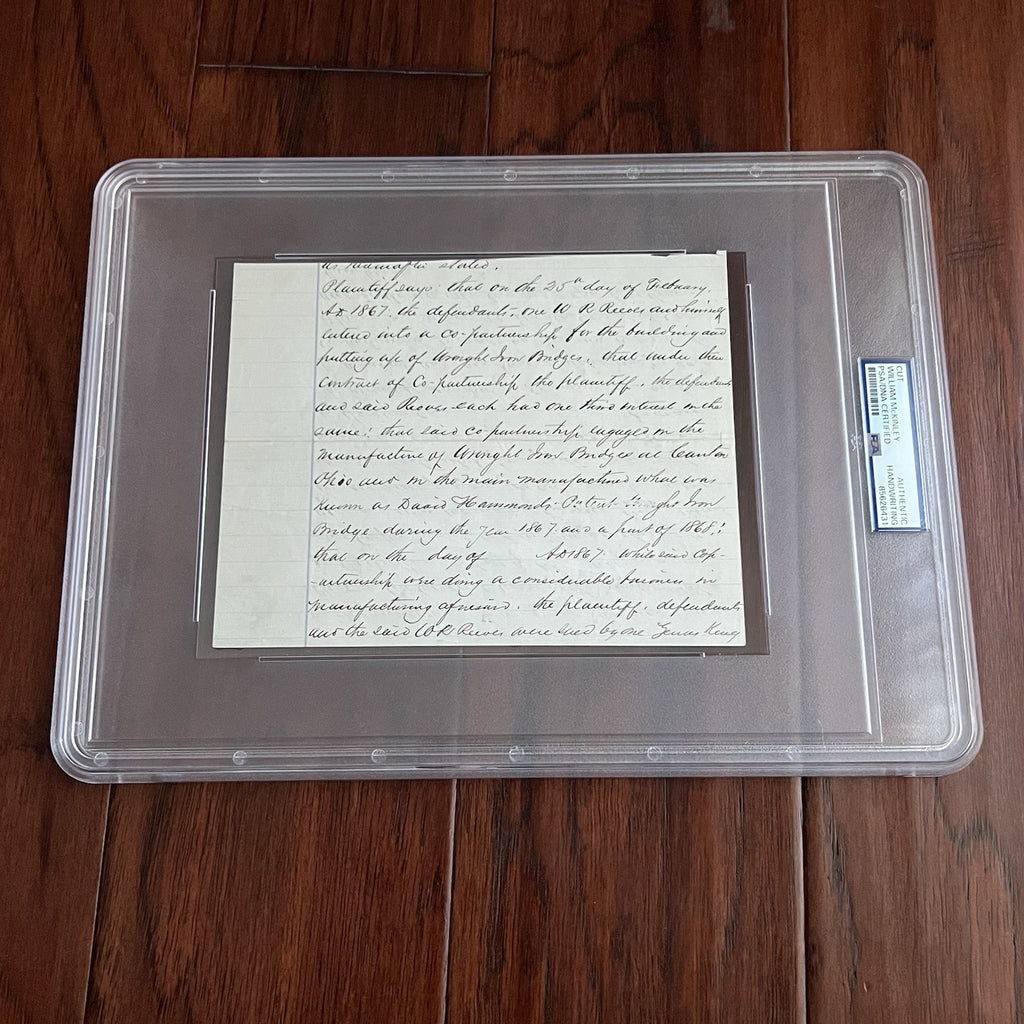 as hereinafter stated.
Plaintiff says that on the 25th day of February.
AD 1867. the defendants, one W R Reeves and himself
entered into a co-partnership for the building and
putting up of Wrought Iron Bridges, that under their
contract of Co-partnership the plaintiff, the defendants
and said Reeves each had one third interest in the
same; that said co-partnership engaged in the
manufacture of Wrought Iron Bridges at Canton
Ohio and in the main manufactured what was
Known as David Hammonds Patent Wrought Iron
Bridge during the year 1867 and a part of 1868;
that on the day of AD 1867 while said Cop-
-artnership were doing a considerable business in
manufacturing aforesaid, the plaintiff, defendants
and the said W R Reeves were sued by one Zenas King
CUT
WILLIAM McKINLEY
PSA/DNA CERTIFIED
PSA
AUTHENTIC
HANDWRITING
85626431